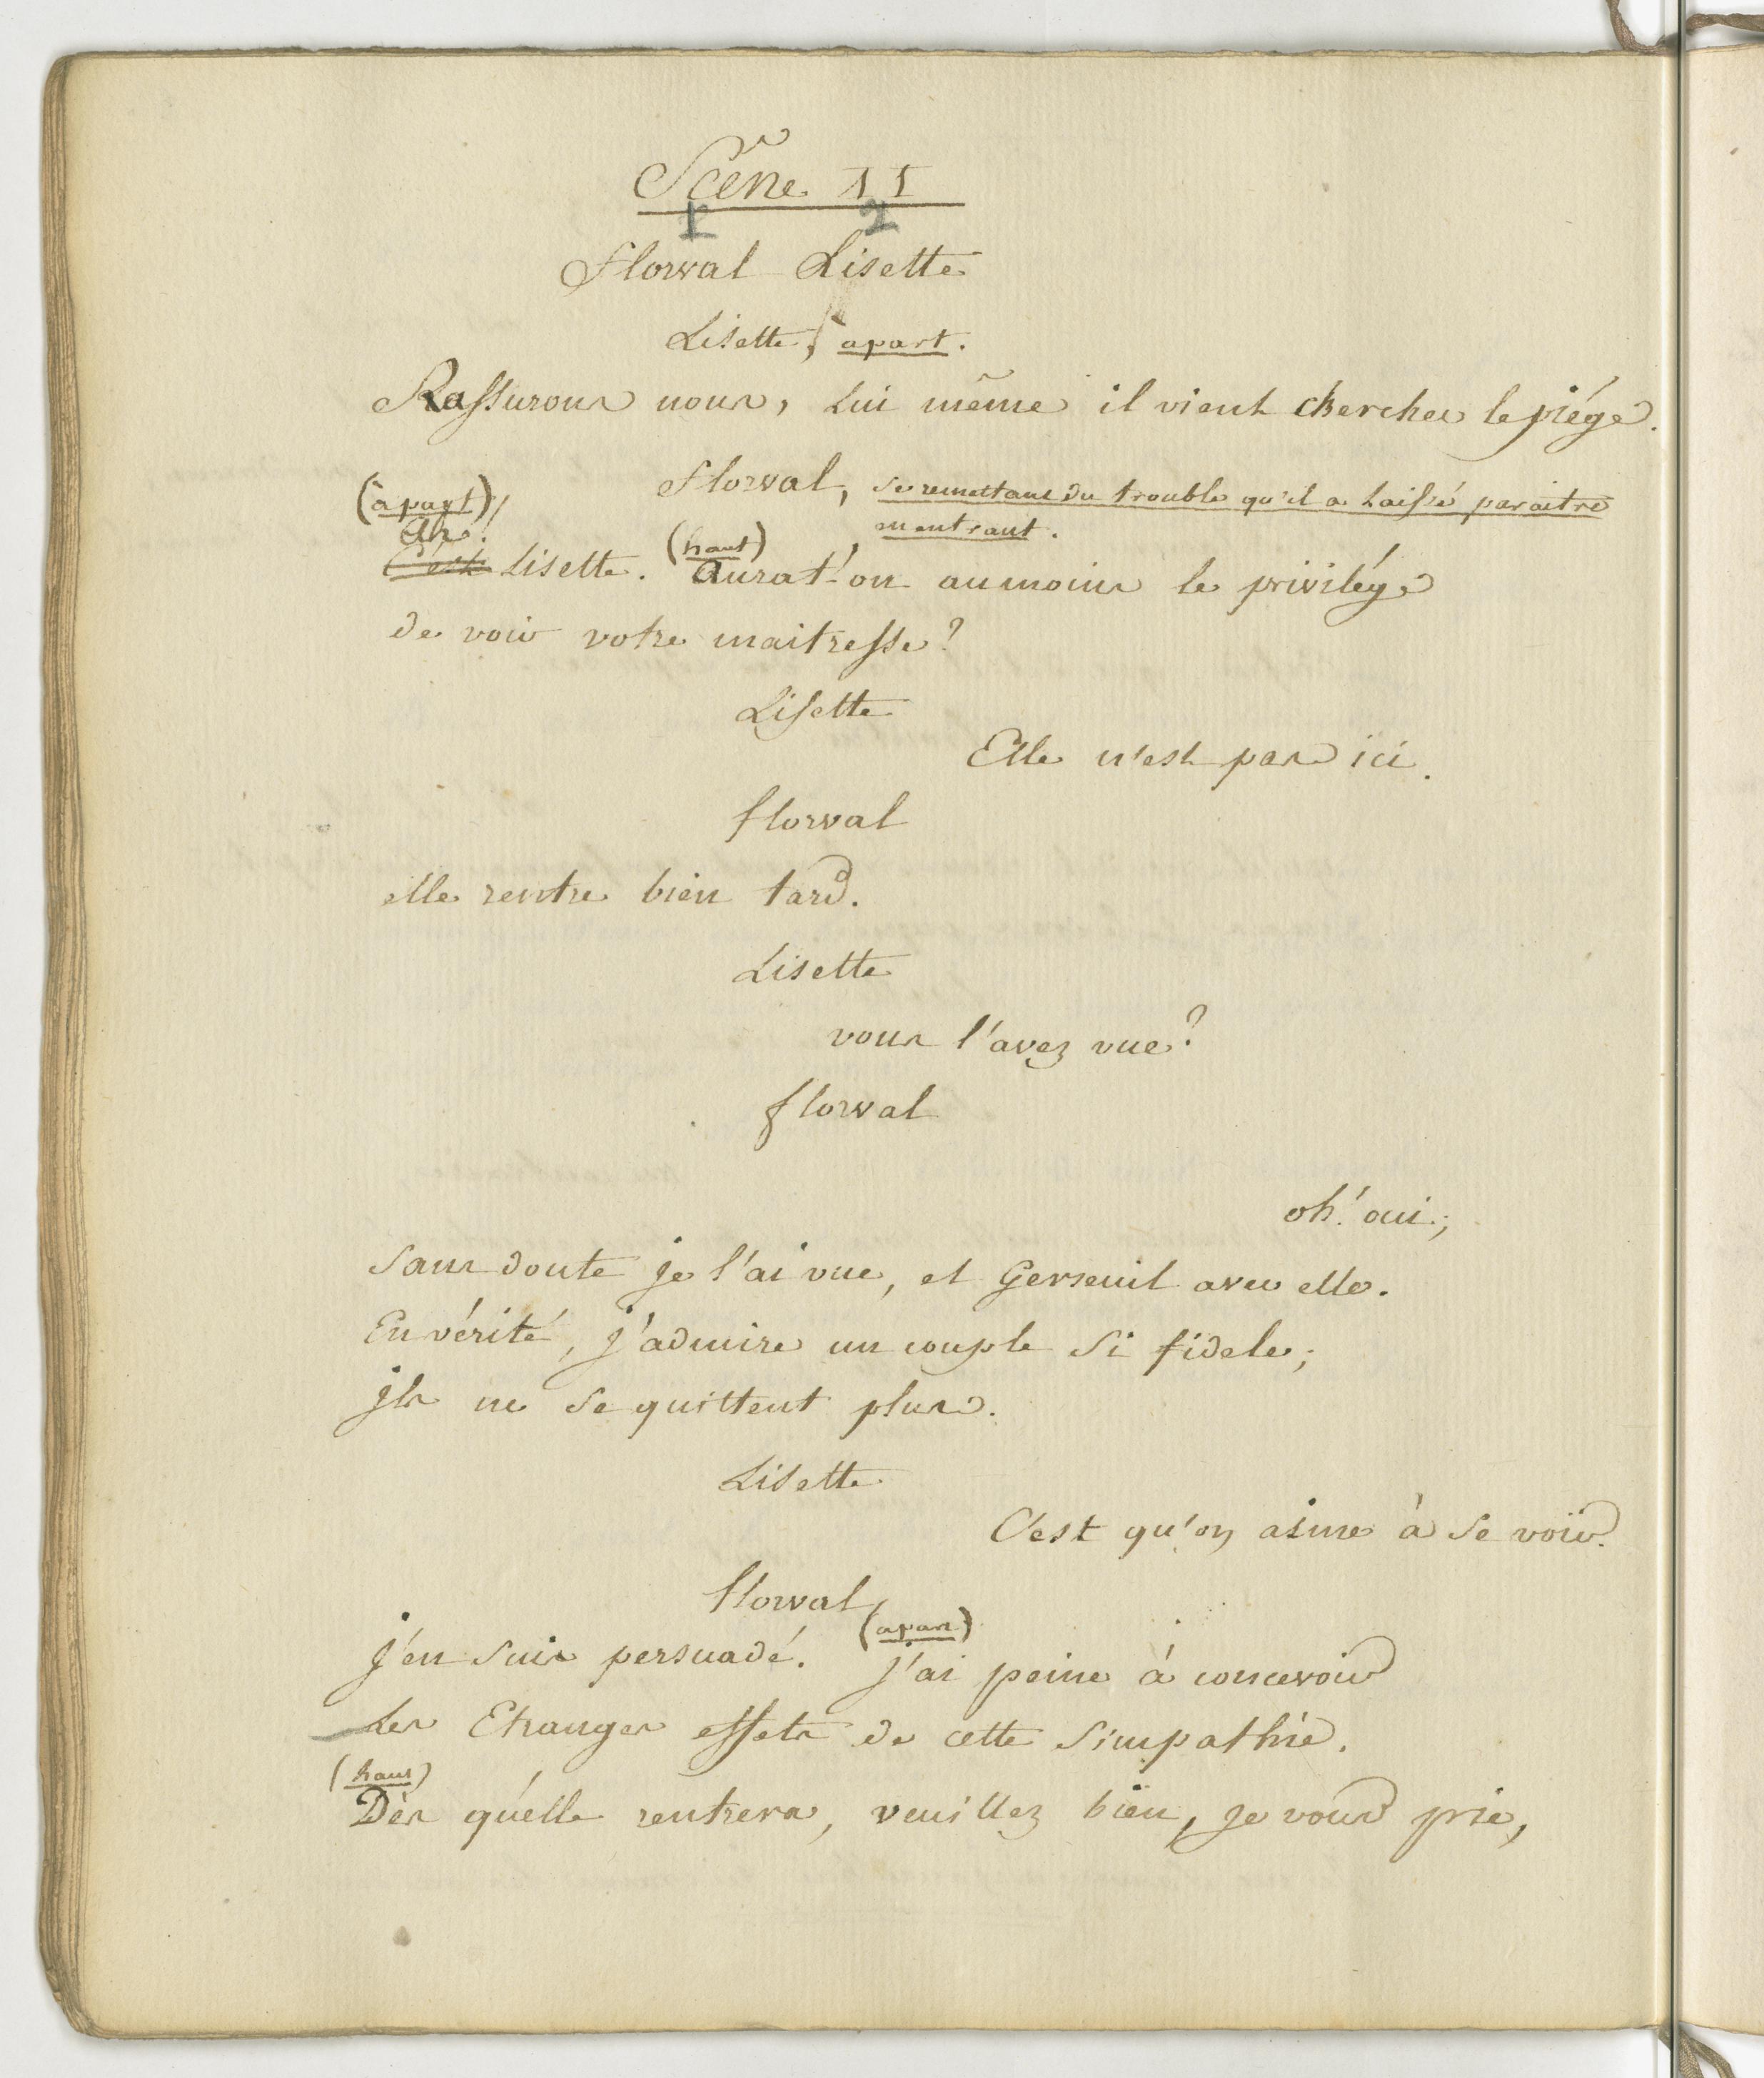 Scêne 11
1 2
Florval Lisette
Lisette, apart.
Rassurons nous, lui même il vient chercher le piége.
Florval, se remettant du trouble qu'il a laissé paraitre
(à part)
Ah! en entrant.
C'est Lisette. (haut) Aurat'-on aumoins le privilége
de voir votre maitresse?
Lisette
Elle n'est pas ici.
florval
elle rentre bien tard.
Lisette
vous l'avez vue?
florval
oh! oui;
Sans doute je l'ai vue, et Gerseuil avec elle.
En vérité, j'admire un couple si fidele;
jls ne se quittent plus.
Lisette
C'est qu'on aime à se voir.
florval
j'en suis persuadé. (apart) j'ai peine à concevoir
Les Etranges effets de cette simpathie.
(haut)
Dès qu'elle rentrera, veuillez bien, je vous prie,